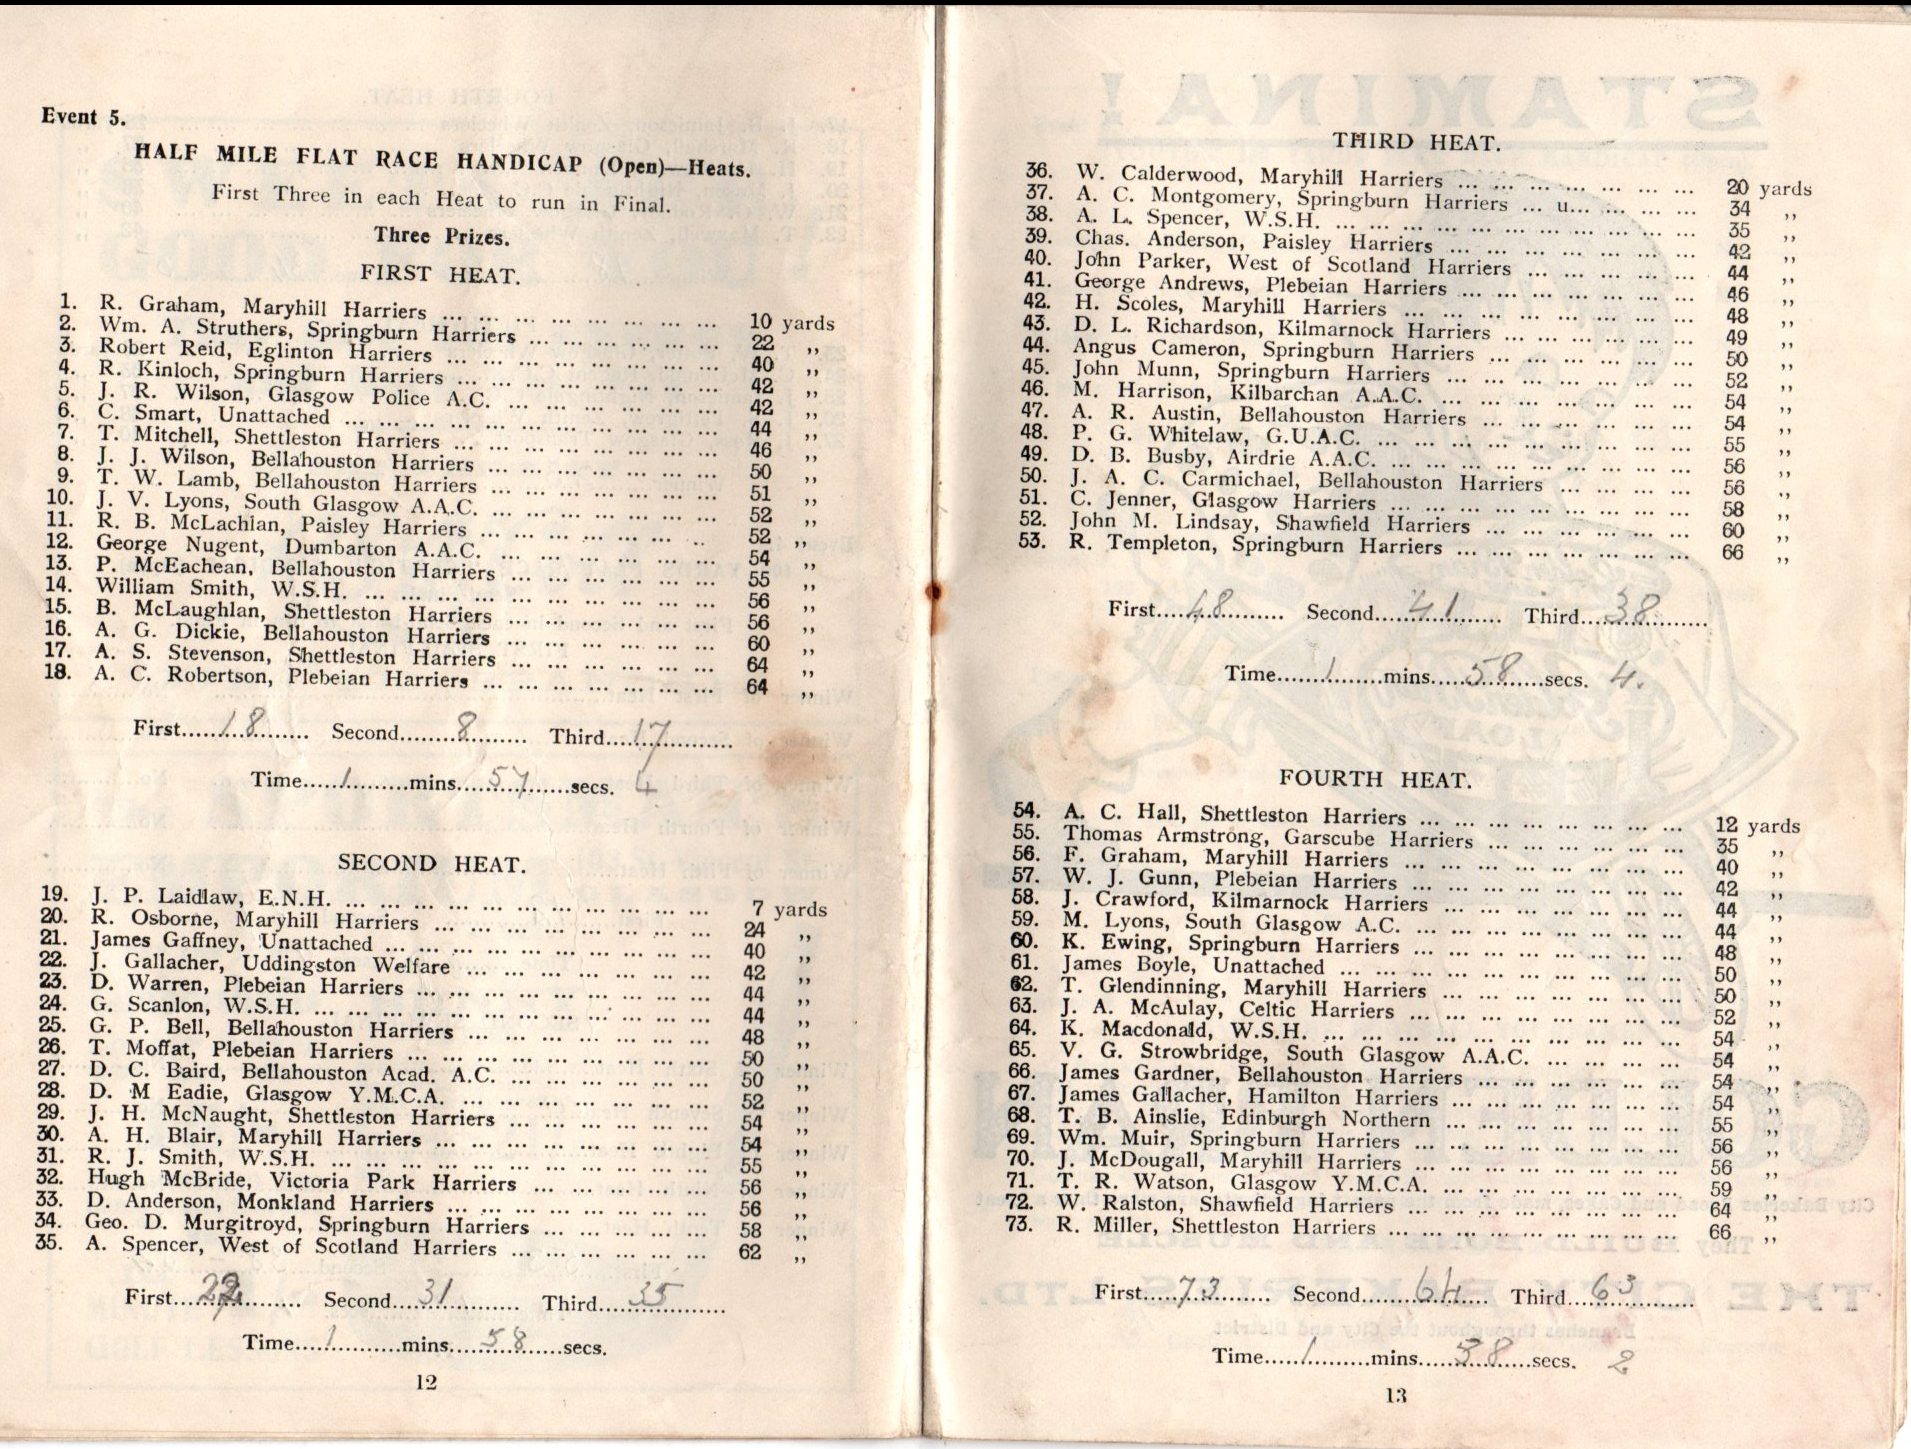 Event 5.
HALF MILE FLAT RACE HANDICAP (Open)—Heats.
First Three in each Heat to run in Final.
Three Prizes.
FIRST HEAT.
1. R. Graham, Maryhill Harriers ... ... ... ... ... ... ... ... 10 yards
2. Wm. A. Struthers, Springburn Harriers ... ... ... ... ... ... 22 ,,
3. Robert Reid, Eglinton Harriers ... ... ... ... ... ... ... ... 40 ,,
4. R. Kinloch, Springburn Harriers ... ... ... ... ... ... ... ... 42 ,,
5. J. R. Wilson, Glasgow Police A.C. ... ... ... ... ... ... 42 ,,
6. C. Smart, Unattached ... ... ... ... ... ... ... ... ... ... ... 44 ,,
7. T. Mitchell, Shettleston Harriers ... ... ... ... ... ... ... ... 46 ,,
8. J. J. Wilson, Bellahouston Harriers ... ... ... ... ... ... ... 50 ,,
9. T. W. Lamb, Bellahouston Harriers ... ... ... ... ... ... ... 51 ,,
10. J. V. Lyons, South Glasgow A.A.C. ... ... ... ... ... ... ... 52 ,,
11. R. B. McLachlan, Paisley Harriers ... ... ... ... ... ... .. 52 ,,
12. George Nugent, Dumbarton A.A.C. ... ... ... ... ... ... ... 54 ,,
13. P. McEachean, Bellahouston Harriers ... ... ... ... ... ... 55 ,,
14. William Smith, W.S.H. ... ... ... ... ... ... ... ... ... ... ... 56 ,,
15. B. McLaughlan, Shettleston Harriers ... ... ... ... ... ... 56 ,,
16. A. G. Dickie, Bellahouston Harriers ... ... ... ... ... ... 60 ,,
17. A. S. Stevenson, Shettleston Harriers ... ... ... ... ... ... 64 ,,
18. A. C. Robertson, Plebeian Harriers ... ... ... ... ... ... ... 64 ,,
First.....18........ Second........8........ Third...17..............
Time.....1.........mins.....57.......secs. 4
SECOND HEAT.
19. J. P. Laidlaw, E.N.H. ... ... ... ... ... ... ... ... ... ... ... 7 yards
20. R. Osborne, Maryhill Harriers ... ... ... ... ... ... ... ... 24 ,,
21. James Gaffney, Unattached ... ... ... ... ... ... ... ... ... 40 ,,
22. J. Gallacher, Uddingston Welfare ... ... ... ... ... ... ... 42 ,,
23. D. Warren, Plebeian Harriers ... ... ... ... ... ... ... ... ... 44 ,,
24. G. Scanlon, W.S.H. ... ... ... ... ... ... ... ... ... ... ... ... 44 ,,
25. G. P. Bell, Bellahouston Harriers ... ... ... ... ... ... ... 48 ,,
26. T. Moffat, Plebeian Harriers ... ... ... ... ... ... ... ... ... 50 ,,
27. D. C. Baird, Bellahouston Acad. A.C. ... ... ... ... ... ... 50 ,,
28. D. M Eadie, Glasgow Y.M.C.A. ... ... ... ... ... ... ... ... 52 ,,
29. J. H. McNaught, Shettleston Harriers ... ... ... ... ... ... 54 ,,
30. A. H. Blair, Maryhill Harriers ... ... ... ... ... ... ... ... 54 ,,
31. R. J. Smith, W.S.H. ... ... ... ... ... ... ... ... ... ... ... 55 ,,
32. Hugh McBride, Victoria Park Harriers ... ... ... ... ... 56 ,,
33. D. Anderson, Monkland Harriers ... ... ... ... ... ... ... ... 56 ,,
34. Geo. D. Murgitroyd, Springburn Harriers ... ... ... ... ... 58 ,,
35. A. Spencer, West of Scotland Harriers ... ... ... ... ... ... 62 ,,
First.....22......... Second.....31......... Third.....35.........
Time.....1.........mins.....58.......secs.
12
THIRD HEAT.
36. W. Calderwood, Maryhill Harriers ... ... ... ... ... ... ... 20 yards
37. A. C. Montgomery, Springburn Harriers ... u... ... ... ... 34 ,,
38. A. L. Spencer, W.S.H. ... ... ... ... ... ... ... ... ... ... ... 35 ,,
39. Chas. Anderson, Paisley Harriers ... ... ... ... ... ... ... ... 42 ,,
40. John Parker, West of Scotland Harriers ... ... ... ... ... 44 ,,
41. George Andrews, Plebeian Harriers ... ... ... ... ... ... ... 46 ,,
42. H. Scoles, Maryhill Harriers ... ... ... ... ... ... ... ... ... 48 ,,
43. D. L. Richardson, Kilmarnock Harriers ... ... ... ... ... ... 49 ,,
44. Angus Cameron, Springburn Harriers ... ... ... ... ... ... 50 ,,
45. John Munn, Springburn Harriers ... ... ... ... ... ... ... 52 ,,
46. M. Harrison, Kilbarchan A.A.C. ... ... ... ... ... ... ... ... 54 ,,
47. A. R. Austin, Bellahouston Harriers ... ... ... ... ... ... 54 ,,
48. P. G. Whitelaw, G.U.A.C. ... ... ... ... ... ... ... ... ... 55 ,,
49. D. B. Busby, Airdrie A.A.C. ... ... ... ... ... ... ... ... ... 56 ,,
50. J. A. C. Carmichael, Bellahouston Harriers ... ... ... ... 56 ,,
51. C. Jenner, Glasgow Harriers ... ... ... ... ... ... ... ... ... 58 ,,
52. John M. Lindsay, Shawfield Harriers ... ... ... ... ... ... 60 ,,
53. R. Templeton, Springburn Harriers ... ... ... ... ... ... ... 66 ,,
First....48......... Second....41......... Third....38.........
Time.......1........mins.....58.......secs. 4.
FOURTH HEAT.
54. A. C. Hall, Shettleston Harriers ... ... ... ... ... ... ... ... 12 yards
55. Thomas Armstrong, Garscube Harriers ... ... ... ... ... ... 35 ,,
56. F. Graham, Maryhill Harriers ... ... ... ... ... ... ... ... 40 ,,
57. W. J. Gunn, Plebeian Harriers ... ... ... ... ... ... ... ... 42 ,,
58. J. Crawford, Kilmarnock Harriers ... ... ... ... ... ... ... 44 ,,
59. M. Lyons, South Glasgow A.C. ... ... ... ... ... ... ... ... 44 ,,
60. K. Ewing, Springburn Harriers ... ... ... ... ... ... ... ... 48 ,,
61. James Boyle, Unattached ... ... ... ... ... ... ... ... ... ... 50 ,,
62. T. Glendinning, Maryhill Harriers ... ... ... ... ... ... ... 50 ,,
63. J. A. McAulay, Celtic Harriers ... ... ... ... ... ... ... ... 52 ,,
64. K. Macdonald, W.S.H. ... ... ... ... ... ... ... ... ... ... ... 54 ,,
65. V. G. Strowbridge, South Glasgow A.A.C. ... ... ... ... 54 ,,
66. James Gardner, Bellahouston Harriers ... ... ... ... ... ... 54 ,,
67. James Gallacher, Hamilton Harriers ... ... ... ... ... ... ... 54 ,,
68. T. B. Ainslie, Edinburgh Northern ... ... ... ... ... ... ... 55 ,,
69. Wm. Muir, Springburn Harriers ... ... ... ... ... ... ... ... 56 ,,
70. J. McDougall, Maryhill Harriers ... ... ... ... ... ... ... ... 56 ,,
71. T. R. Watson, Glasgow Y.M.C.A. ... ... ... ... ... ... ... 59 ,,
72. W. Ralston, Shawfield Harriers ... ... ... ... ... ... ... ... 64 ,,
73. R. Miller, Shettleston Harriers ... ... ... ... ... ... ... ... ... 66 ,,
First.....73......... Second........64..... Third....63.........
Time.....1.........mins.....58.....secs. 2
13